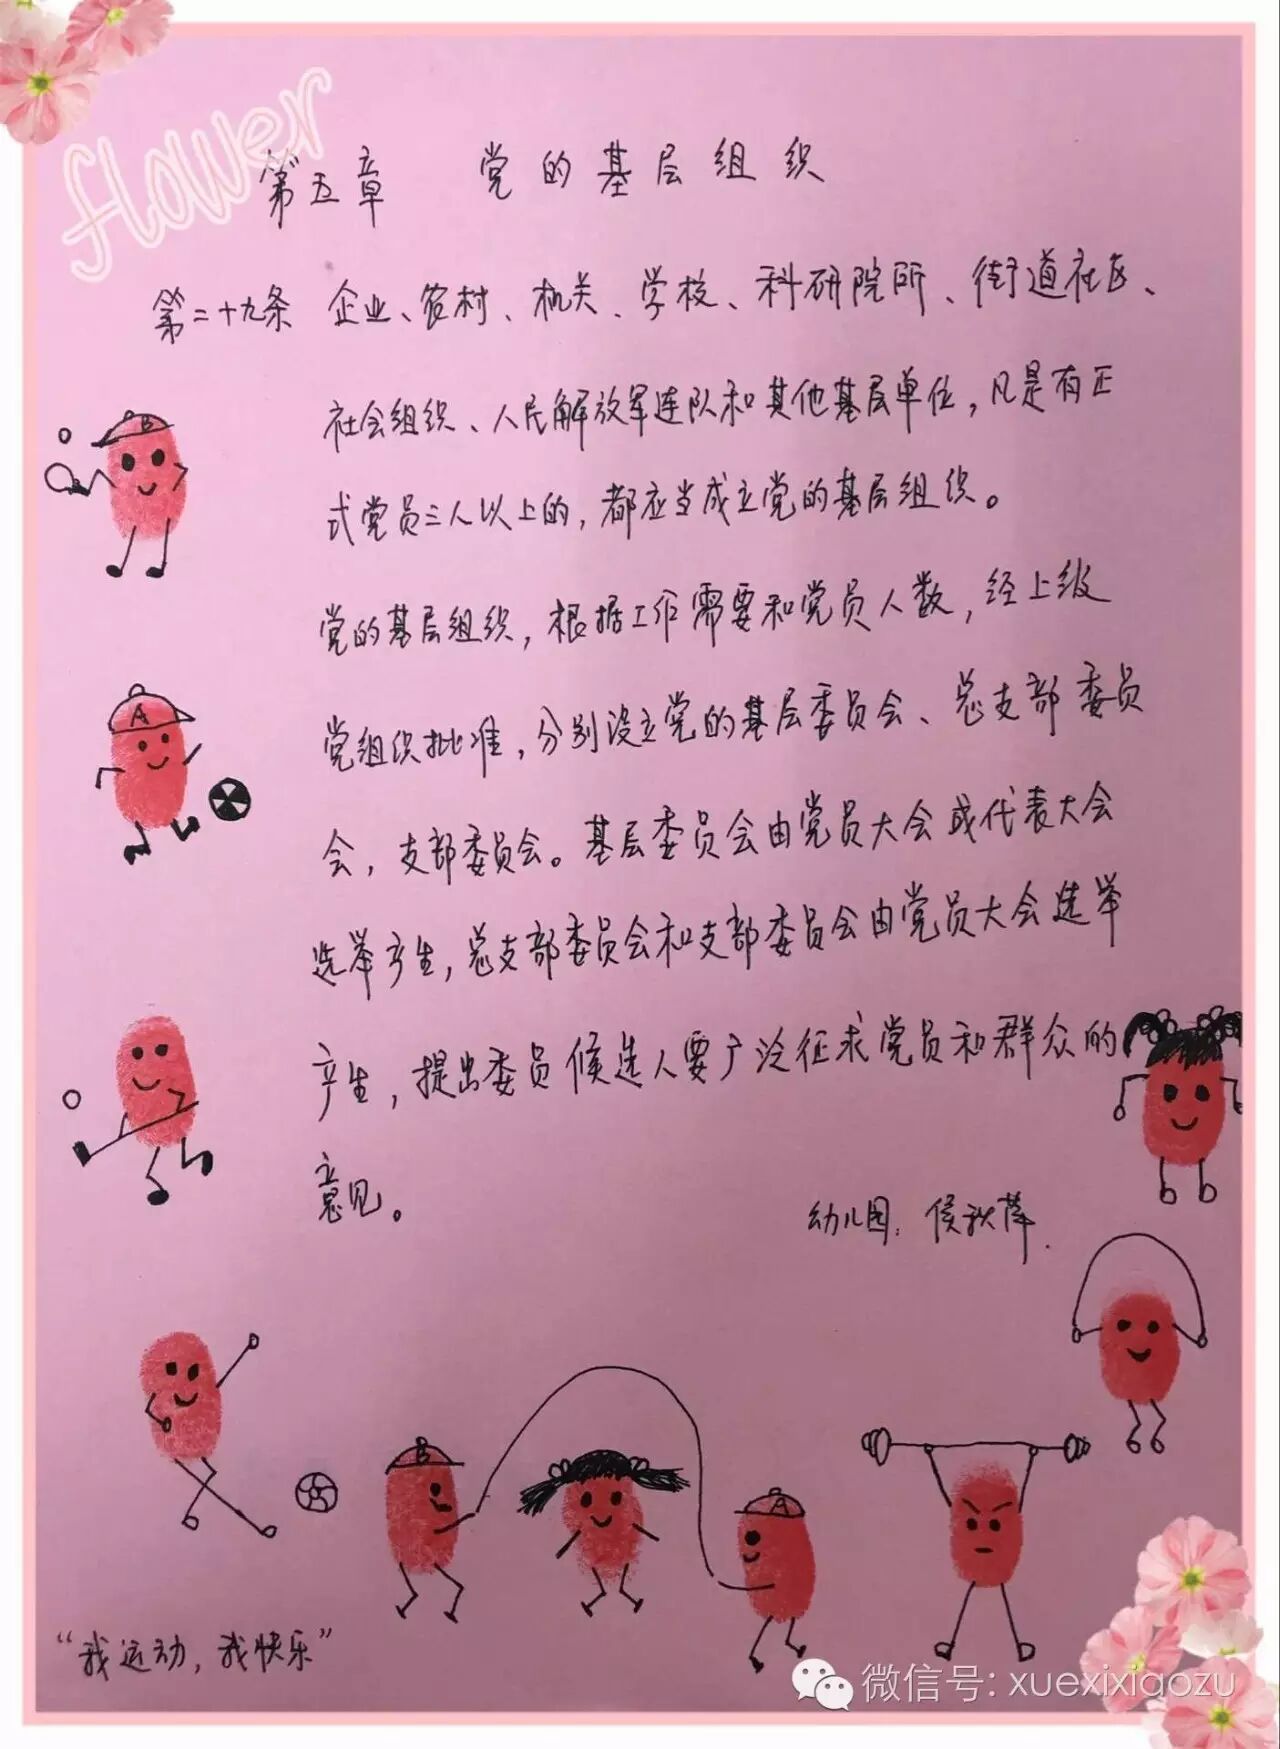 flower
第五章 党的基层组织
第二十九条 企业、农村、机关、学校、科研院所、街道社区、
社会组织、人民解放军连队和其他基层单位，凡是有正
式党员三人以上的，都应当成立党的基层组织。
党的基层组织，根据工作需要和党员人数，经上级
党组织批准，分别设立党的基层委员会、总支部委员
会，支部委员会。基层委员会由党员大会或代表大会
选举产生，总支部委员会和支部委员会由党员大会选举
产生，提出委员候选人要广泛征求党员和群众的
意见。
幼儿园：侯秋萍.
B
A
B
A
“我运动，我快乐”
微信号: xuexixiaozu